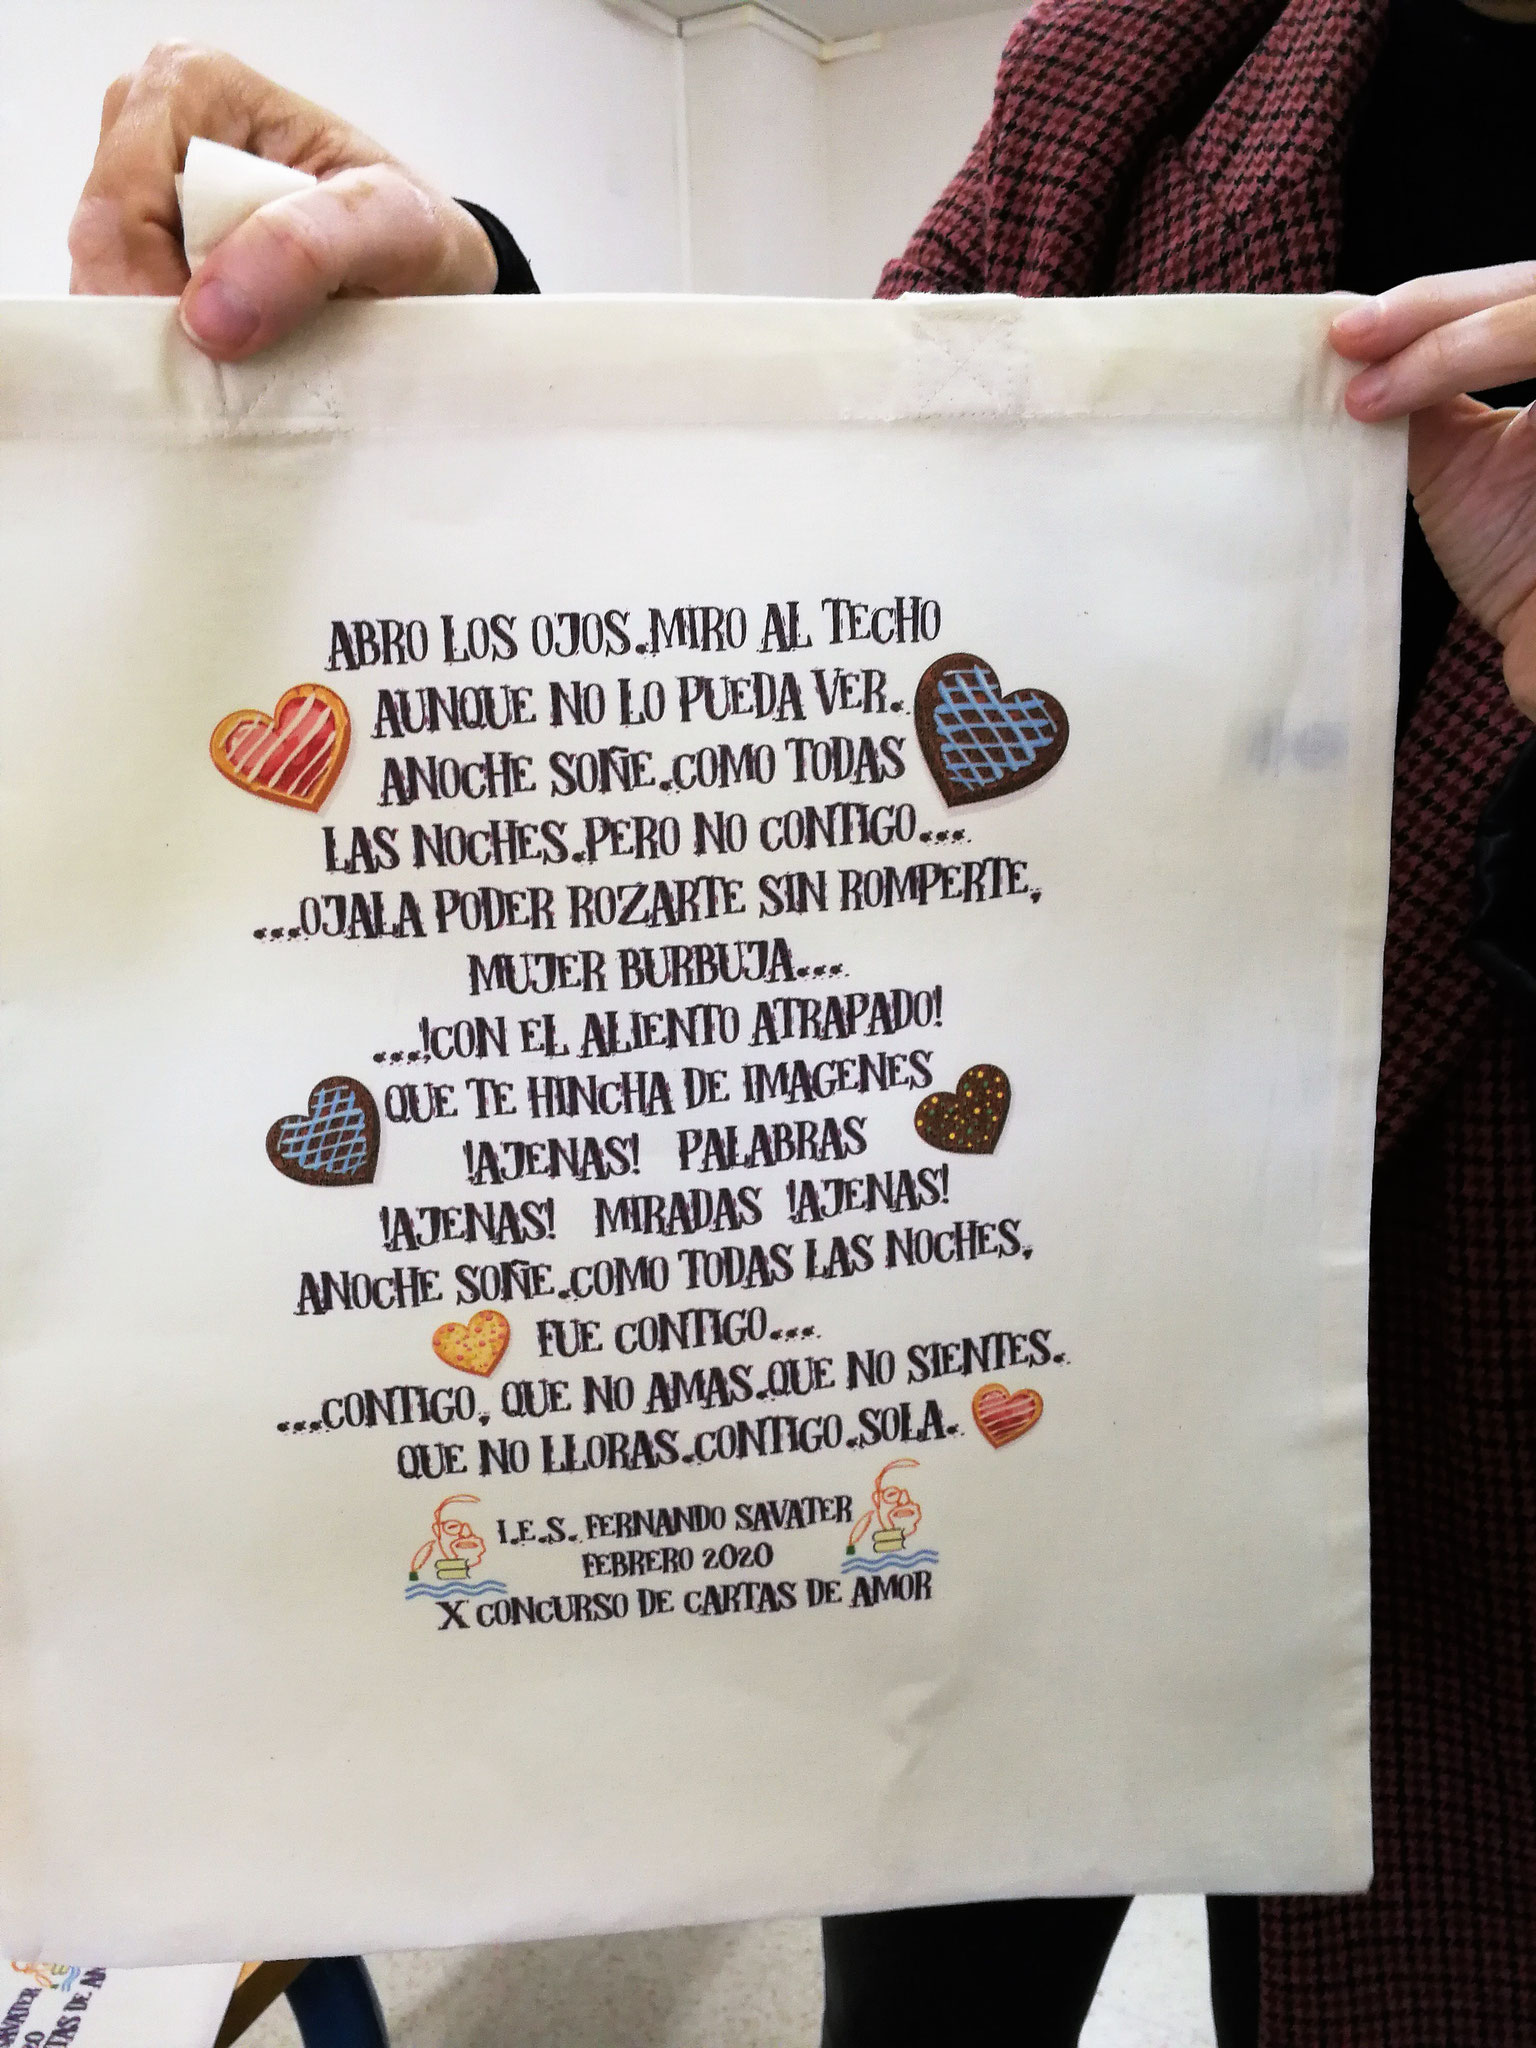 ABRO LOS OJOS.MIRO AL TECHO
AUNQUE NO LO PUEDA VER.
ANOCHE SOÑE.COMO TODAS
LAS NOCHES.PERO NO CONTIGO...
...OJALA PODER ROZARTE SIN ROMPERTE,
MUJER BURBUJA...
...!CON EL ALIENTO ATRAPADO!
QUE TE HINCHA DE IMAGENES
!AJENAS! PALABRAS
!AJENAS! MIRADAS !AJENAS!
ANOCHE SOÑE.COMO TODAS LAS NOCHES,
FUE CONTIGO...
...CONTIGO, QUE NO AMAS.QUE NO SIENTES.
QUE NO LLORAS.CONTIGO.SOLA.
I.E.S. FERNANDO SAVATER
FEBRERO 2020
X CONCURSO DE CARTAS DE AMOR
SAVATER
20
TAS DE AM